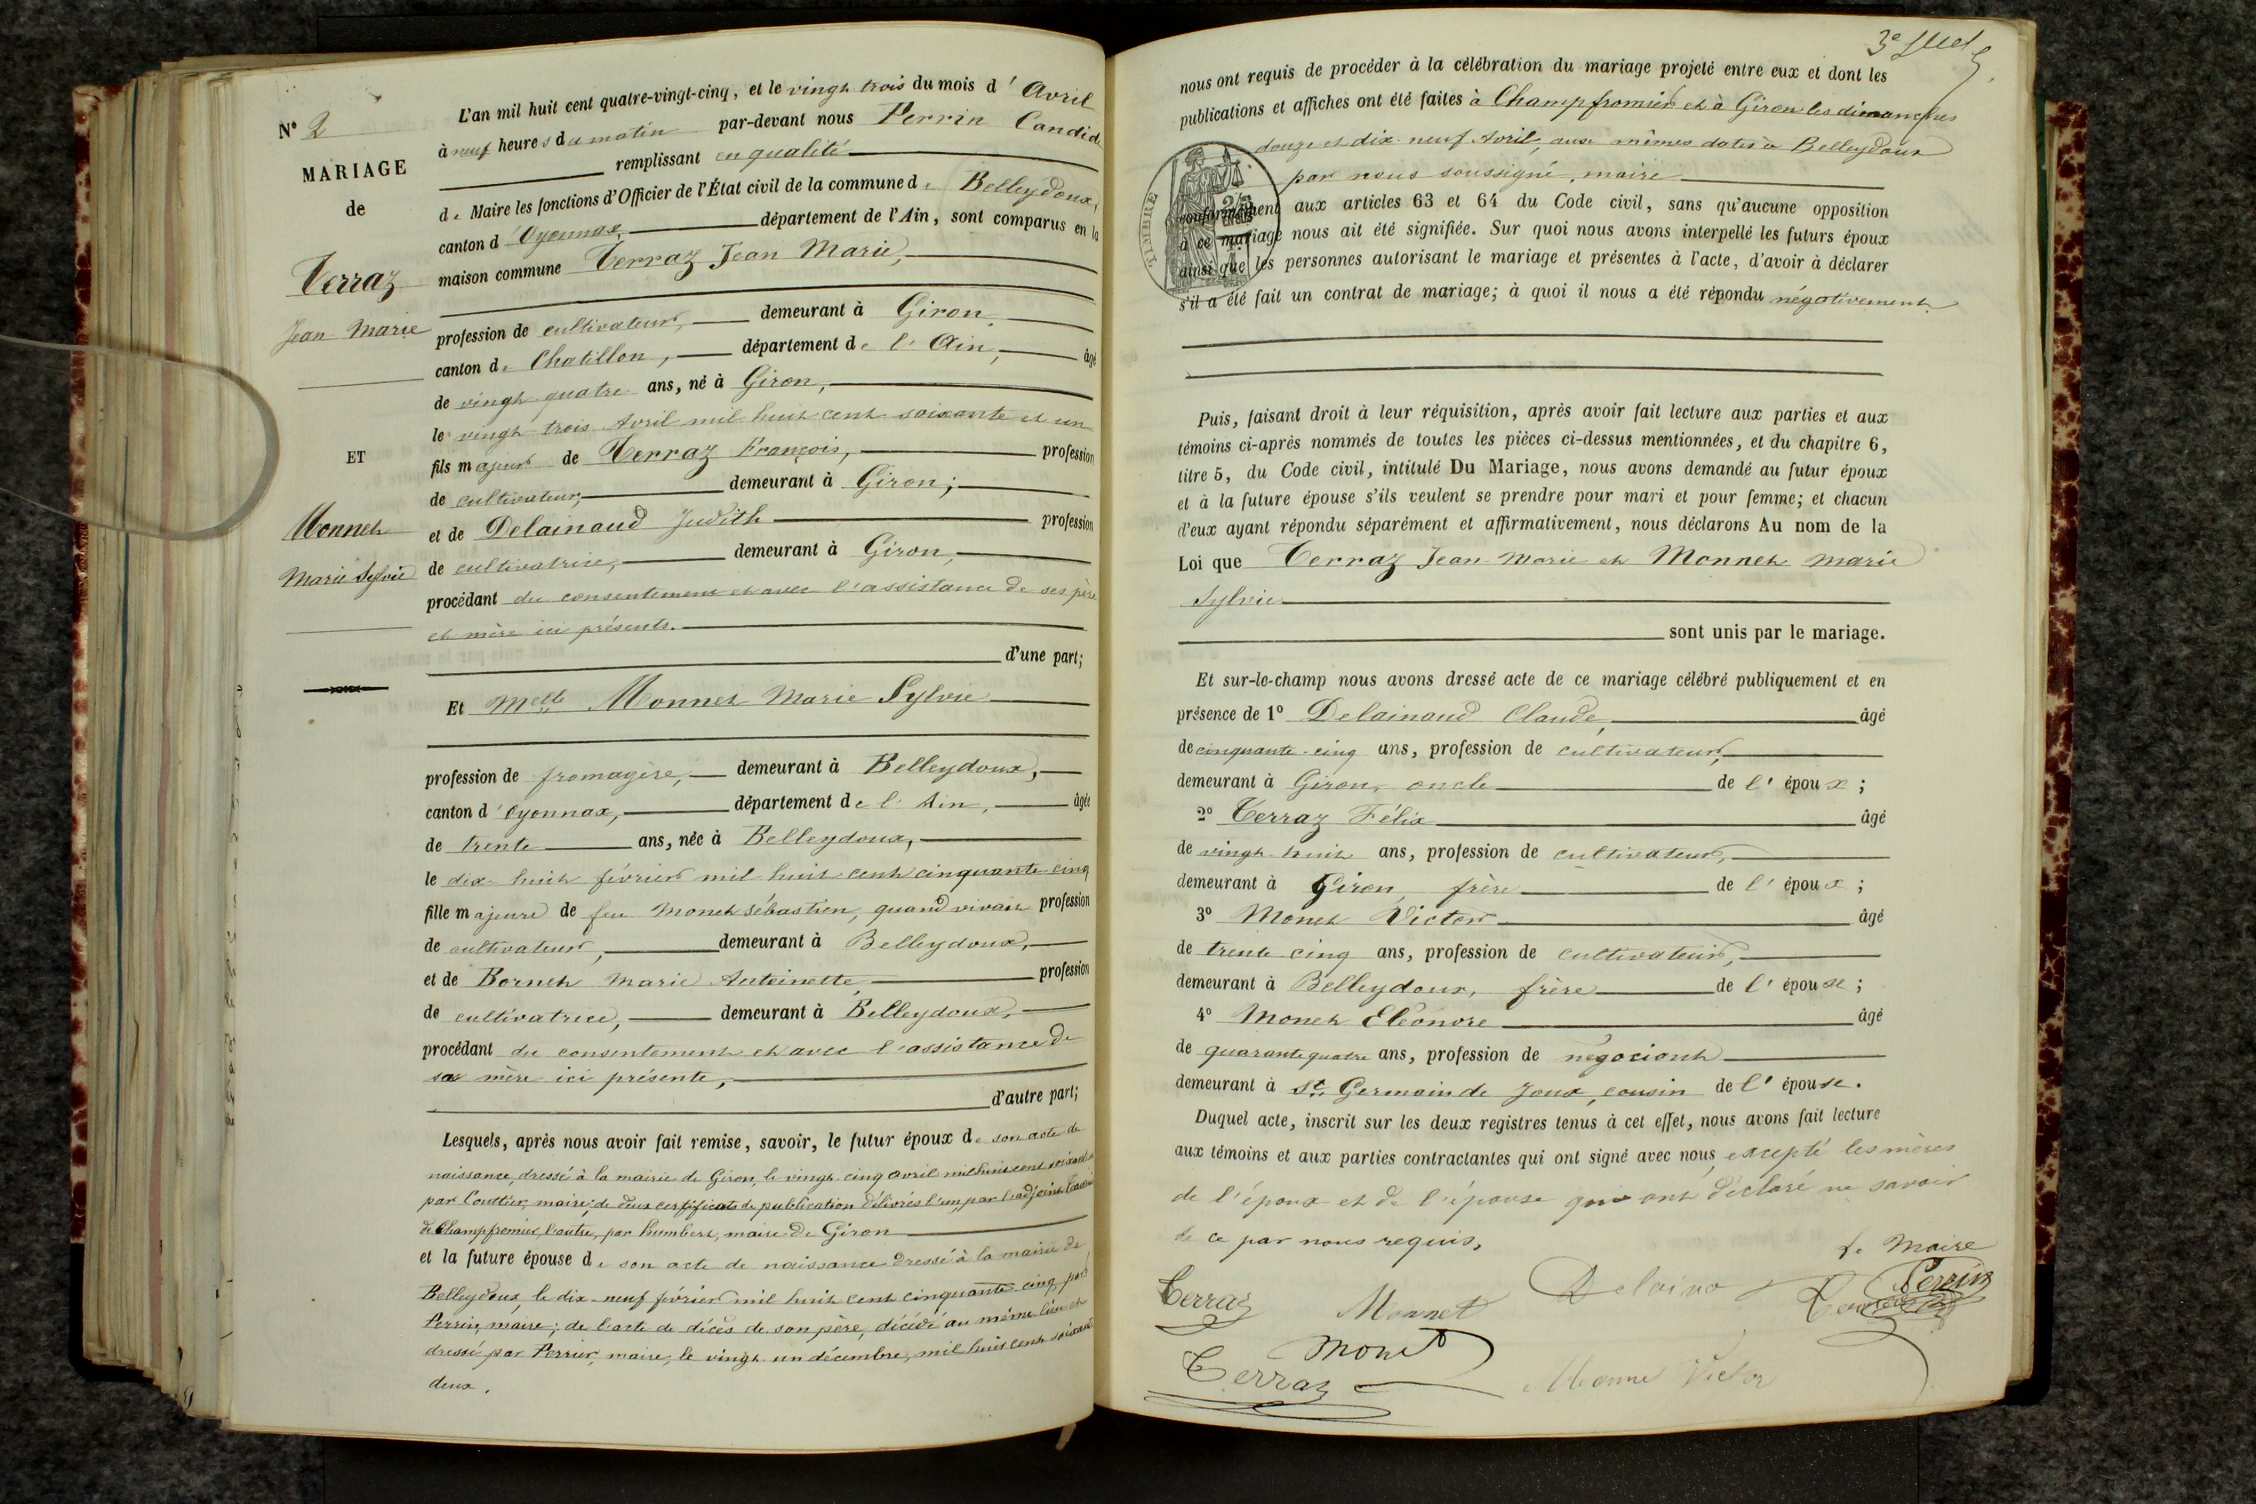 N° 2
MARIAGE
de
Terraz
Jean Marie
ET
Monnet
Marie Sylvie
L'an mil huit cent quatre-vingt-cinq, et le vingt trois du mois d' Avril
à neuf heures du matin par-devant nous Perrin Candide
remplissant en qualité
de Maire les fonctions d'Officier de l'État civil de la commune de Belleydoux,
canton d'Oyonnax, département de l'Ain, sont comparus en la
maison commune Terraz Jean Marie,
profession de cultivateur, demeurant à Giron,
canton de Chatillon, département de l'Ain, âgé
de vingt quatre ans, né à Giron,
le vingt trois Avril mil huit cent soixante et un
fils majeur de Terraz François, profession
de cultivateur, demeurant à Giron;
et de Delainaud Judith profession
de cultivatrice, demeurant à Giron,
procédant du consentement et avec l'assistance de ses père
et mère ici présents.
d'une part;
Et Melle Monnet Marie Sylvie
profession de fromagère, demeurant à Belleydoux,
canton d'Oyonnax, département de l'Ain, âgée
de trente ans, née à Belleydoux,
le dix huit février mil huit cent cinquante cinq
fille majeure de feu Monet Sébastien, quand vivait profession
de cultivateur, demeurant à Belleydoux,
et de Bornet Marie Antoinette, profession
de cultivatrice, demeurant à Belleydoux,
procédant du consentement et avec l'assistance de
sa mère ici présente,
d'autre part;
Lesquels, après nous avoir fait remise, savoir, le futur époux de son acte de
naissance, dressé à la mairie de Giron, le vingt cinq avril mil huit cent soixante
par Coutier, maire; de deux certificats de publication délivrés l'un, par l'adjoint
de Champfromier, l'autre, par Humbert, maire de Giron
et la future épouse de son acte de naissance dressé à la mairie de
Belleydoux, le dix-neuf février mil huit cent cinquante cinq, par
Perrin, maire; de l'acte de décès de son père, décédé au même lieu et
dressé par Perrin, maire, le vingt un décembre, mil huit cent soixante
deux.
nous ont requis de procéder à la célébration du mariage projeté entre eux et dont les
publications et affiches ont été faites à Champfromier et à Giron les dimanches
douze et dix neuf Avril, aux mêmes dates à Belleydoux
par nous soussigné, maire
TIMBRE
conformément aux articles 63 et 64 du Code civil, sans qu'aucune opposition
à ce mariage nous ait été signifiée. Sur quoi nous avons interpellé les futurs époux
ainsi que les personnes autorisant le mariage et présentes à l'acte, d'avoir à déclarer
s'il a été fait un contrat de mariage; à quoi il nous a été répondu négativement.
Puis, faisant droit à leur réquisition, après avoir fait lecture aux parties et aux
témoins ci-après nommés de toutes les pièces ci-dessus mentionnées, et du chapitre 6,
titre 5, du Code civil, intitulé Du Mariage, nous avons demandé au futur époux
et à la future épouse s'ils veulent se prendre pour mari et pour femme; et chacun
d'eux ayant répondu séparément et affirmativement, nous déclarons Au nom de la
Loi que Terraz Jean Marie et Monnet Marie
Sylvie
sont unis par le mariage.
Et sur-le-champ nous avons dressé acte de ce mariage célébré publiquement et en
présence de 1° Delainaud Claude, âgé
de cinquante-cinq ans, profession de cultivateur,
demeurant à Giron, oncle de l'époux;
2° Terraz Félix âgé
de vingt huit ans, profession de cultivateur,
demeurant à Giron, frère de l'époux;
3° Monet Victor âgé
de trente cinq ans, profession de cultivateur,
demeurant à Belleydoux, frère de l'épouse;
4° Monet Eléonore âgé
de quarante quatre ans, profession de négociant
demeurant à St Germain de Joux, cousin de l'épouse.
Duquel acte, inscrit sur les deux registres tenus à cet effet, nous avons fait lecture
aux témoins et aux parties contractantes qui ont signé avec nous, excepté les mères
de l'époux et de l'épouse qui ont déclaré ne savoir
de ce par nous requis,
Le Maire
Terraz Monnet Delaino Perrin
Monet
Terraz Monne Victor